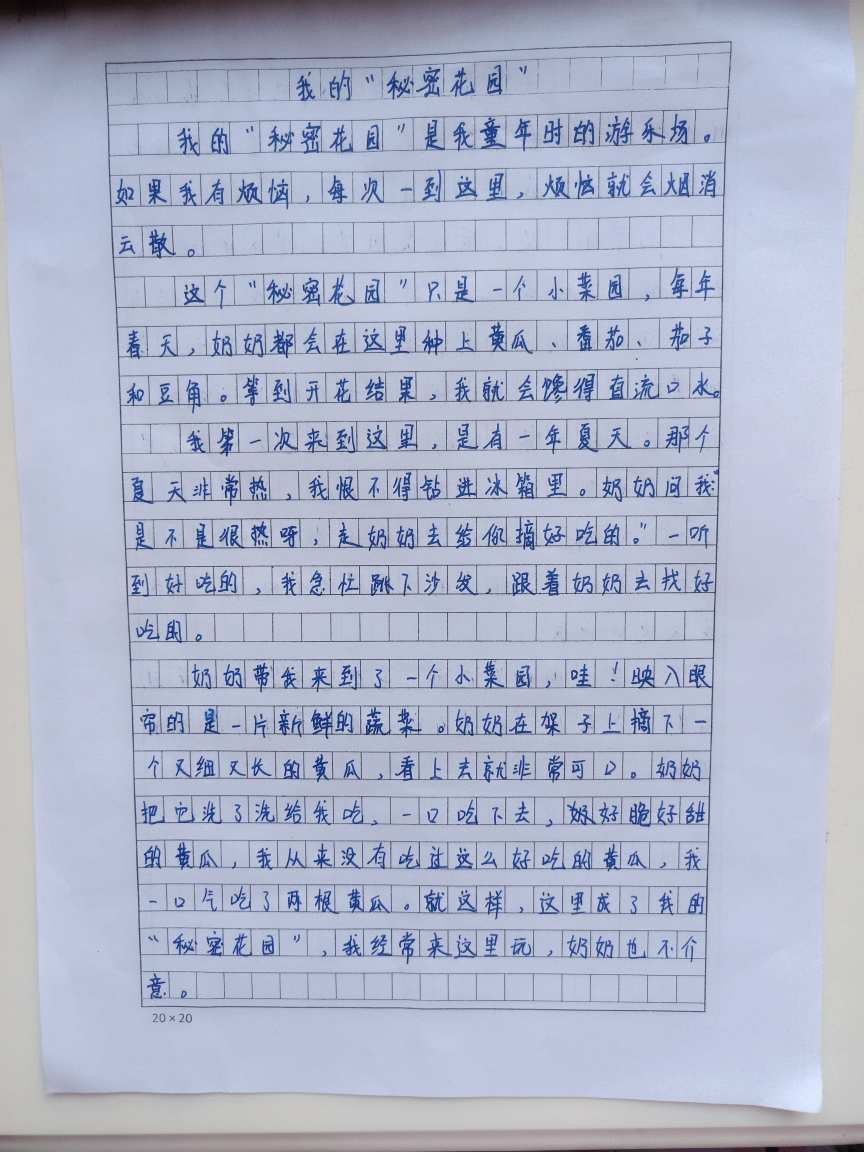 我的“秘密花园”
我的“秘密花园”是我童年时的游乐场。
如果我有烦恼，每次一到这里，烦恼就会烟消
云散。
这个“秘密花园”只是一个小菜园，每年
春天，奶奶都会在这里种上黄瓜、番茄、茄子
和豆角。等到开花结果，我就会馋得直流口水。
我第一次来到这里，是有一年夏天。那个
夏天非常热，我恨不得钻进冰箱里。奶奶问我“
是不是很热呀，走奶奶去给你摘好吃的。”一听
到好吃的，我急忙跳下沙发，跟着奶奶去找好
吃的。
奶奶带我来到了一个小菜园，哇！映入眼
帘的是一片新鲜的蔬菜。奶奶在架子上摘下一
个又细又长的黄瓜，看上去就非常可口。奶奶
把它洗了洗给我吃，一口吃下去，好脆好甜
的黄瓜，我从来没有吃过这么好吃的黄瓜，我
一口气吃了两根黄瓜。就这样，这里成了我的
“秘密花园”，我经常来这里玩，奶奶也不介
意。
20×20